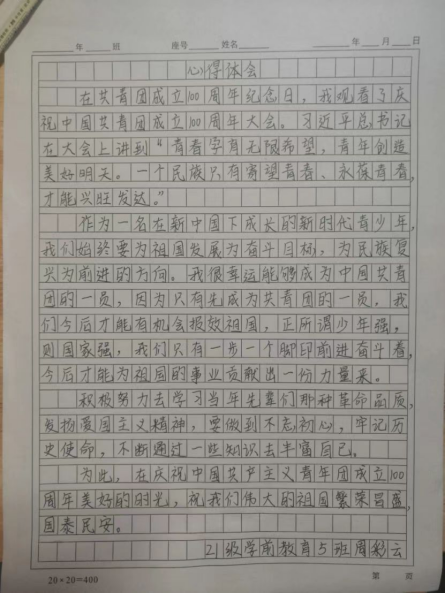 年 班 座号 姓名 年 月 日
心得体会
在共青团成立100周年纪念日，我观看了庆
祝中国共青团成立100周年大会。习近平总书记
在大会上讲到“青春孕育无限希望，青年创造
美好明天。一个民族只有寄望青春、永葆青春，
才能兴旺发达。”
作为一名在新中国下成长的新时代青少年，
我们始终要为祖国发展为奋斗目标，为民族复
兴为前进的方向。我很幸运能够成为中国共青
团的一员，因为只有先成为共青团的一员，我
们今后才能有机会报效祖国，正所谓少年强，
则国家强，我们只有一步一个脚印前进奋斗着，
今后才能为祖国的事业贡献出一份力量来。
积极努力去学习当年先辈们那种革命品质，
发扬爱国主义精神，要做到不忘初心，牢记历
史使命，不断通过一些知识去丰富自己。
为此，在庆祝中国共产主义青年团成立100
周年美好的时光，祝我们伟大的祖国繁荣昌盛，
国泰民安。
21级学前教育5班周彩云
20×20=400 第 页